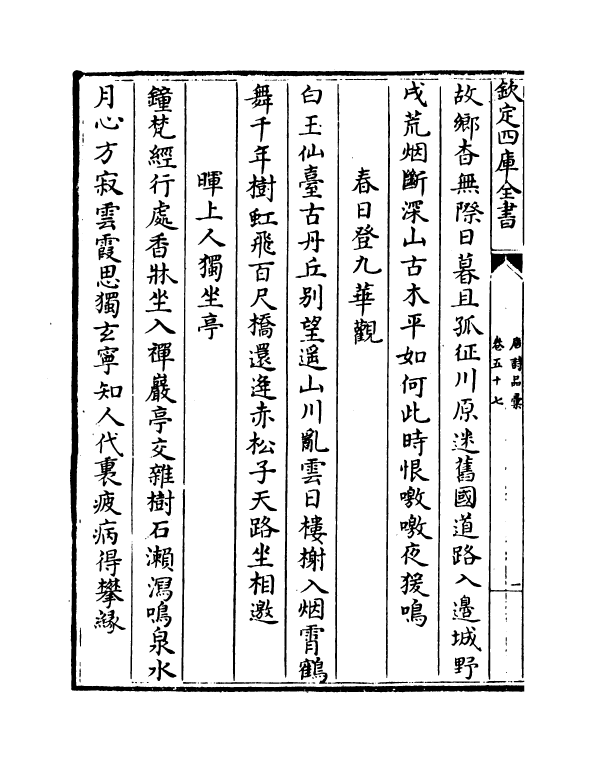 欽定四庫全書
唐詩品彙
卷五十七
一
故鄉杳無際日暮且孤征川原迷舊國道路入邊城野
戍荒烟斷深山古木平如何此時恨噭噭夜猨鳴
春日登九華觀
白玉仙臺古丹丘别望遥山川亂雲日樓榭入烟霄鶴
舞千年樹虹飛百尺橋還逢赤松子天路坐相邀
暉上人獨坐亭
鐘梵經行處香牀坐入禪巖亭交雜樹石瀨瀉鳴泉水
月心方寂雲霞思獨玄寧知人代裏疲病得攀緣